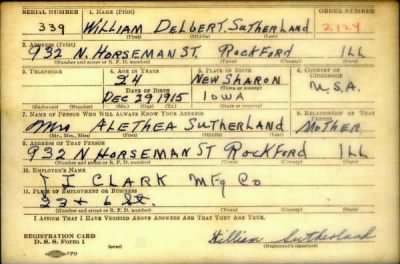 SERIAL NUMBER 1. NAME (Print) ORDER NUMBER
339 WILLIAM DELBERT SUTHERLAND 2124
(First) (Middle) (Last)
2. ADDRESS (Print)
932 N. HORSEMAN ST ROCKFORD ILL
(Number and street or R. F. D. number) (Town) (County) (State)
3. TELEPHONE 4. AGE IN YEARS 5. PLACE OF BIRTH 6. COUNTRY OF CITIZENSHIP
24 NEW SHARON
DATE OF BIRTH (Town or county) U.S.A.
DEC 29 1915 IOWA
(Exchange) (Number) (Mo.) (Day) (Yr.) (State or country)
7. NAME OF PERSON WHO WILL ALWAYS KNOW YOUR ADDRESS 8. RELATIONSHIP OF THAT PERSON
Mrs ALETHEA SUTHERLAND MOTHER
(Mr., Mrs., Miss) (First) (Middle) (Last)
9. ADDRESS OF THAT PERSON
932 N HORSEMAN ST ROCKFORD ILL
(Number and street or R. F. D. number) (Town) (County) (State)
10. EMPLOYER'S NAME
J I CLARK Mfg Co
11. PLACE OF EMPLOYMENT OR BUSINESS
23 + 6 St.
(Number and street or R. F. D. number) (Town) (County) (State)
I AFFIRM THAT I HAVE VERIFIED ABOVE ANSWERS AND THAT THEY ARE TRUE.
REGISTRATION CARD William Sutherland
D. S. S. Form 1 (over) (Registrant's signature)